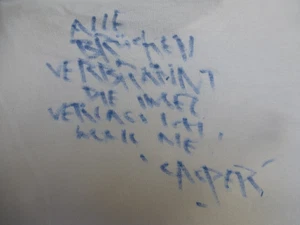 ALLE
BRÜCKEN
VERBRANNT
DIE INSEL
VERLASS ICH
NIE
'CASPER'